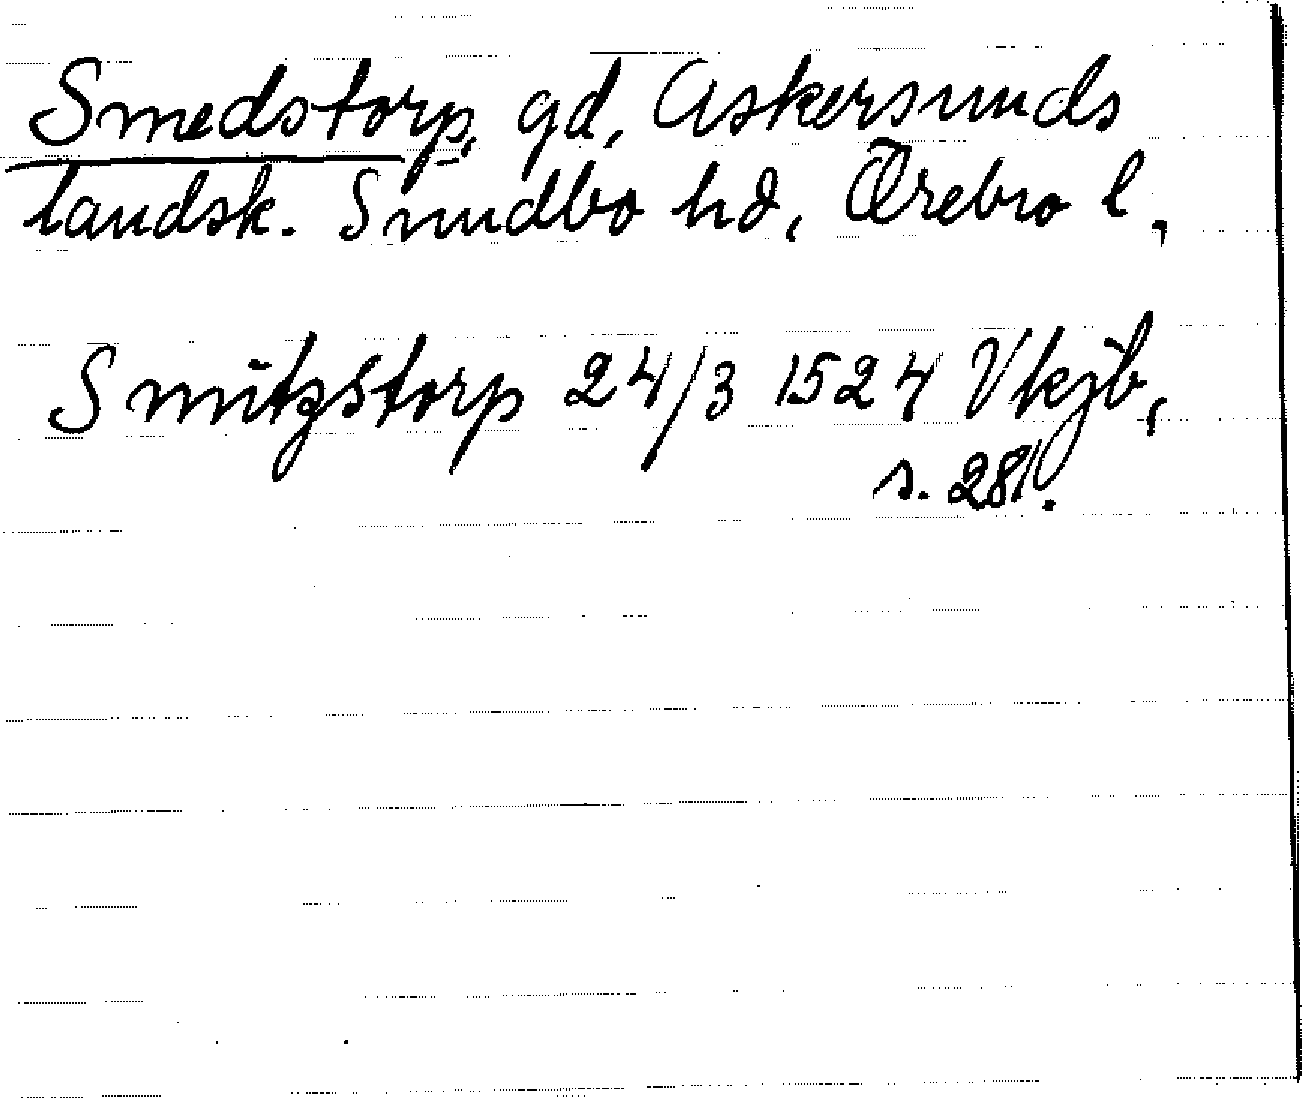 Smedstorp, gd, Askersunds
landsk. Sundbo hd, Örebro l,
Smitzstorp 24/3 1524 Vkjb,
s. 281.